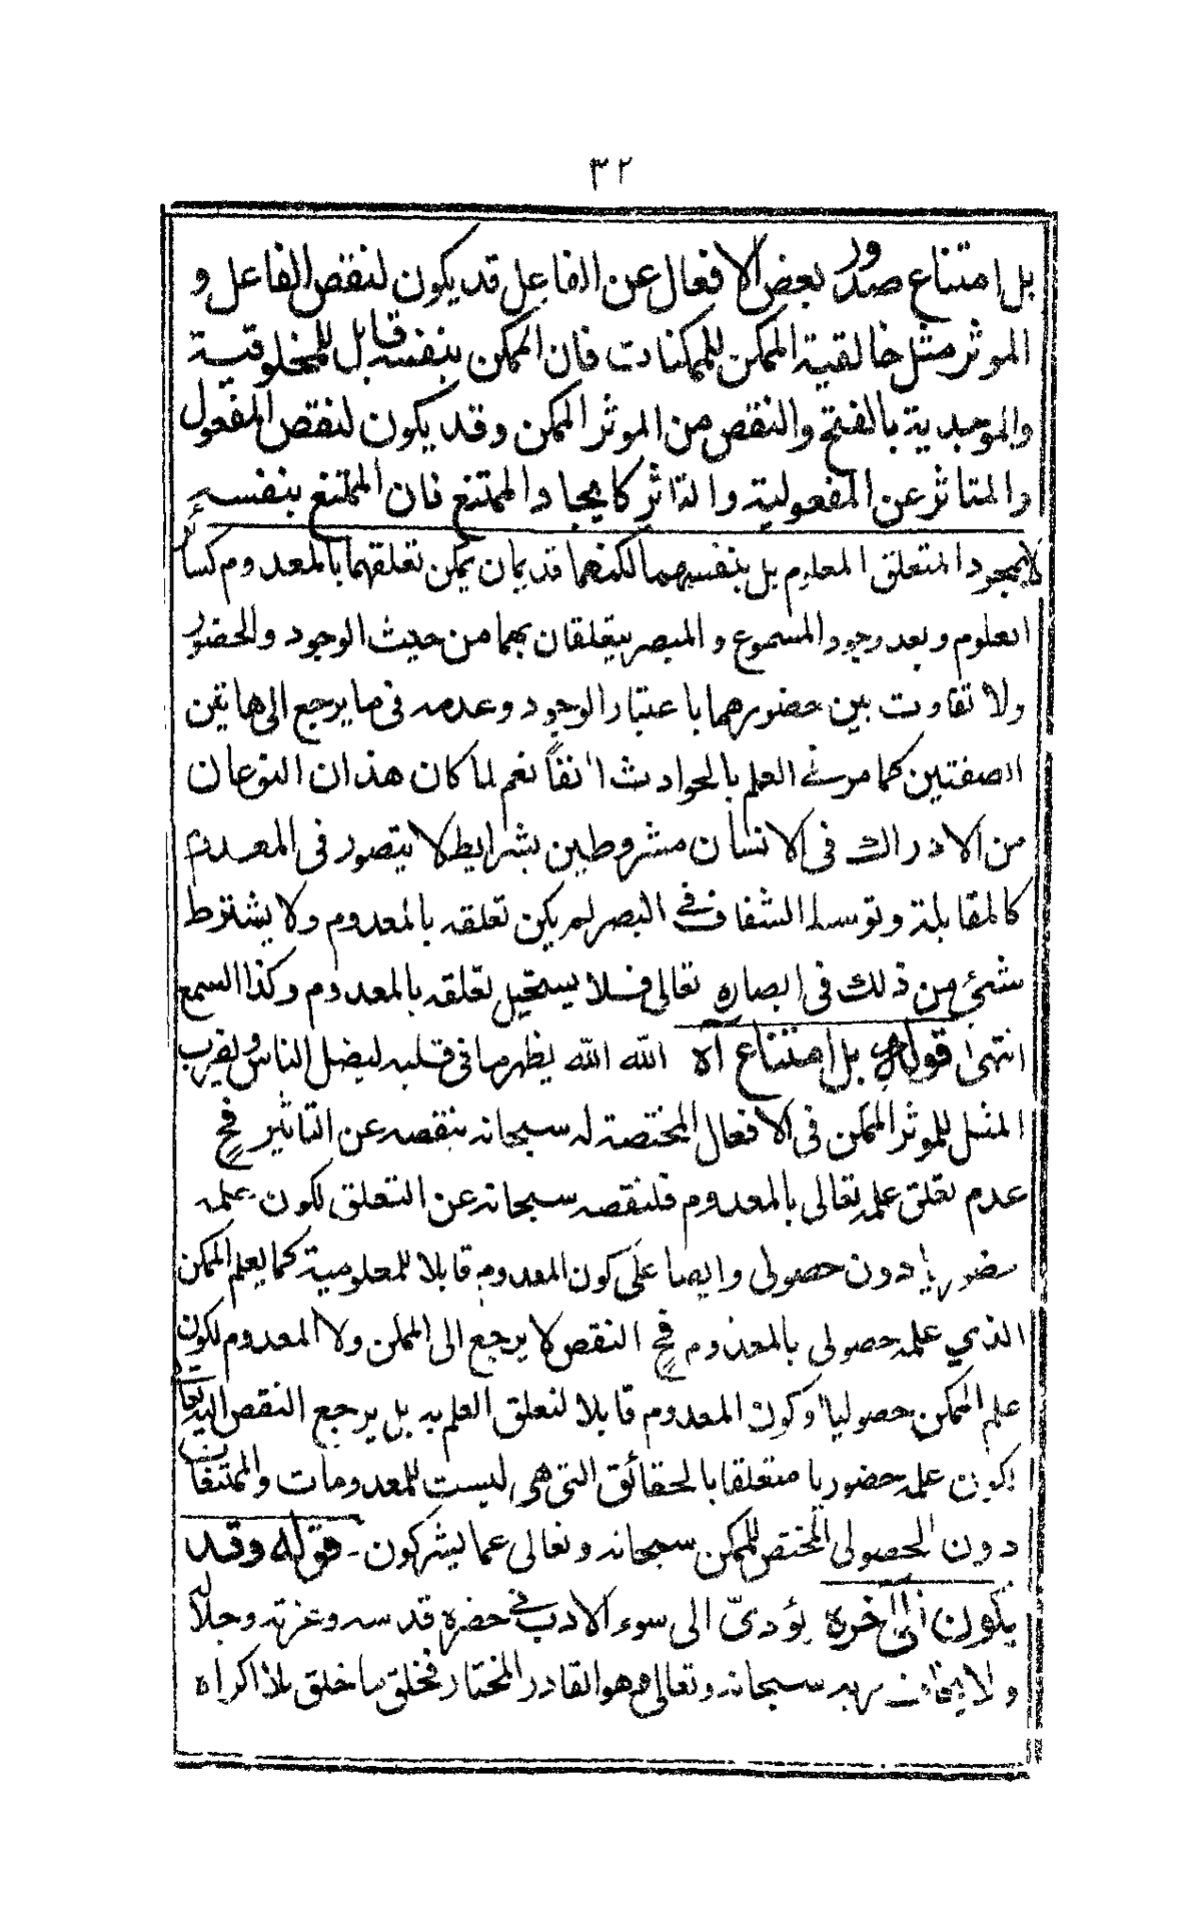 ٣٢
بل امتناع صدور بعض الافعال عن الفاعل قد يكون لنقص الفاعل و
الموثر مثل خالقية الممكن للممكنات فان الممكن بنفسه قابل للمخلوقية
والموجدية بالفتح والنقص من الموثر الممكن وقد يكون لنقص المفعول
والمتاثر عن المفعولية والتاثر كايجاد الممتنع فان الممتنع بنفسه
لا بمجرد المتعلق المعلوم بل بنفسيهما لكنهما قديمان يمكن تعلقهما بالمعدوم كسائر
العلوم وبعد وجود المسموع والمبصر يتعلقان بهما من حيث الوجود والحضور
ولا تفاوت بين حضورهما باعتبار الوجود وعدمه فى ما يرجع الى هاتين
الصفتين كما مر فى العلم بالحوادث اٰنفاً نعم لما كان هذان النوعان
من الادراك فى الانسان مشروطين بشرايط لا يتصور فى المعدوم
كالمقابلة وتوسط الشفاف فى البصر لم يكن تعلقه بالمعدوم ولا يشترط
شئ من ذلك فى ابصاره تعالى فلا يستحيل تعلقه بالمعدوم وكذا السمع
انتهى قوله بل امتناع آه الله الله يظهر ما فى قلبه ليضل الناس ويضرب
المثل للموثر الممكن فى الافعال المختصة له سبحانه بنقصه عن التاثير فح
عدم تعلق علمه تعالى بالمعدوم فلنقصه سبحانه عن التعلق لكون علمه
حضوريا دون حصولى وايضا على كون المعدوم قابلا للمعلومية كما يعلم الممكن
الذي علمه حصولى بالمعدوم فح النقص لا يرجع الى الممكن ولا المعدوم لكون
علم الممكن حصوليا وكون المعدوم قابلا لتعلق العلم به بل يرجع النقص اليه تعالى
لكون علمه حضوريا متعلقا بالحقائق التى هى ليست للمعدومات والممتنعات
دون الحصولى المختص للممكن سبحانه وتعالى عما يشركون ـ قوله وقد
يكون الى اخره يؤدىّ الى سوء الادب فى حضرة قدسه وعزته وجلاله
ولا يخاف ربه سبحانه وتعالى وهو القادر المختار فخلق ما خلق بلا اكراه